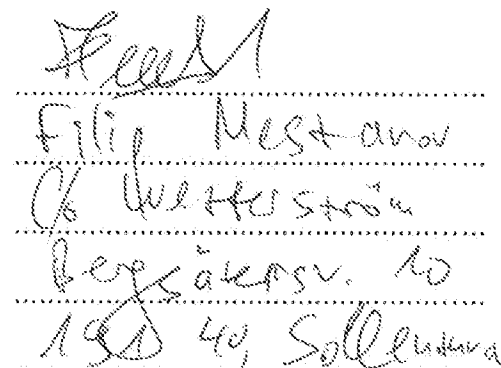 Filip Mestanov
c/o Wetterström
Bergsåkersv. 10
191 40, Sollentuna